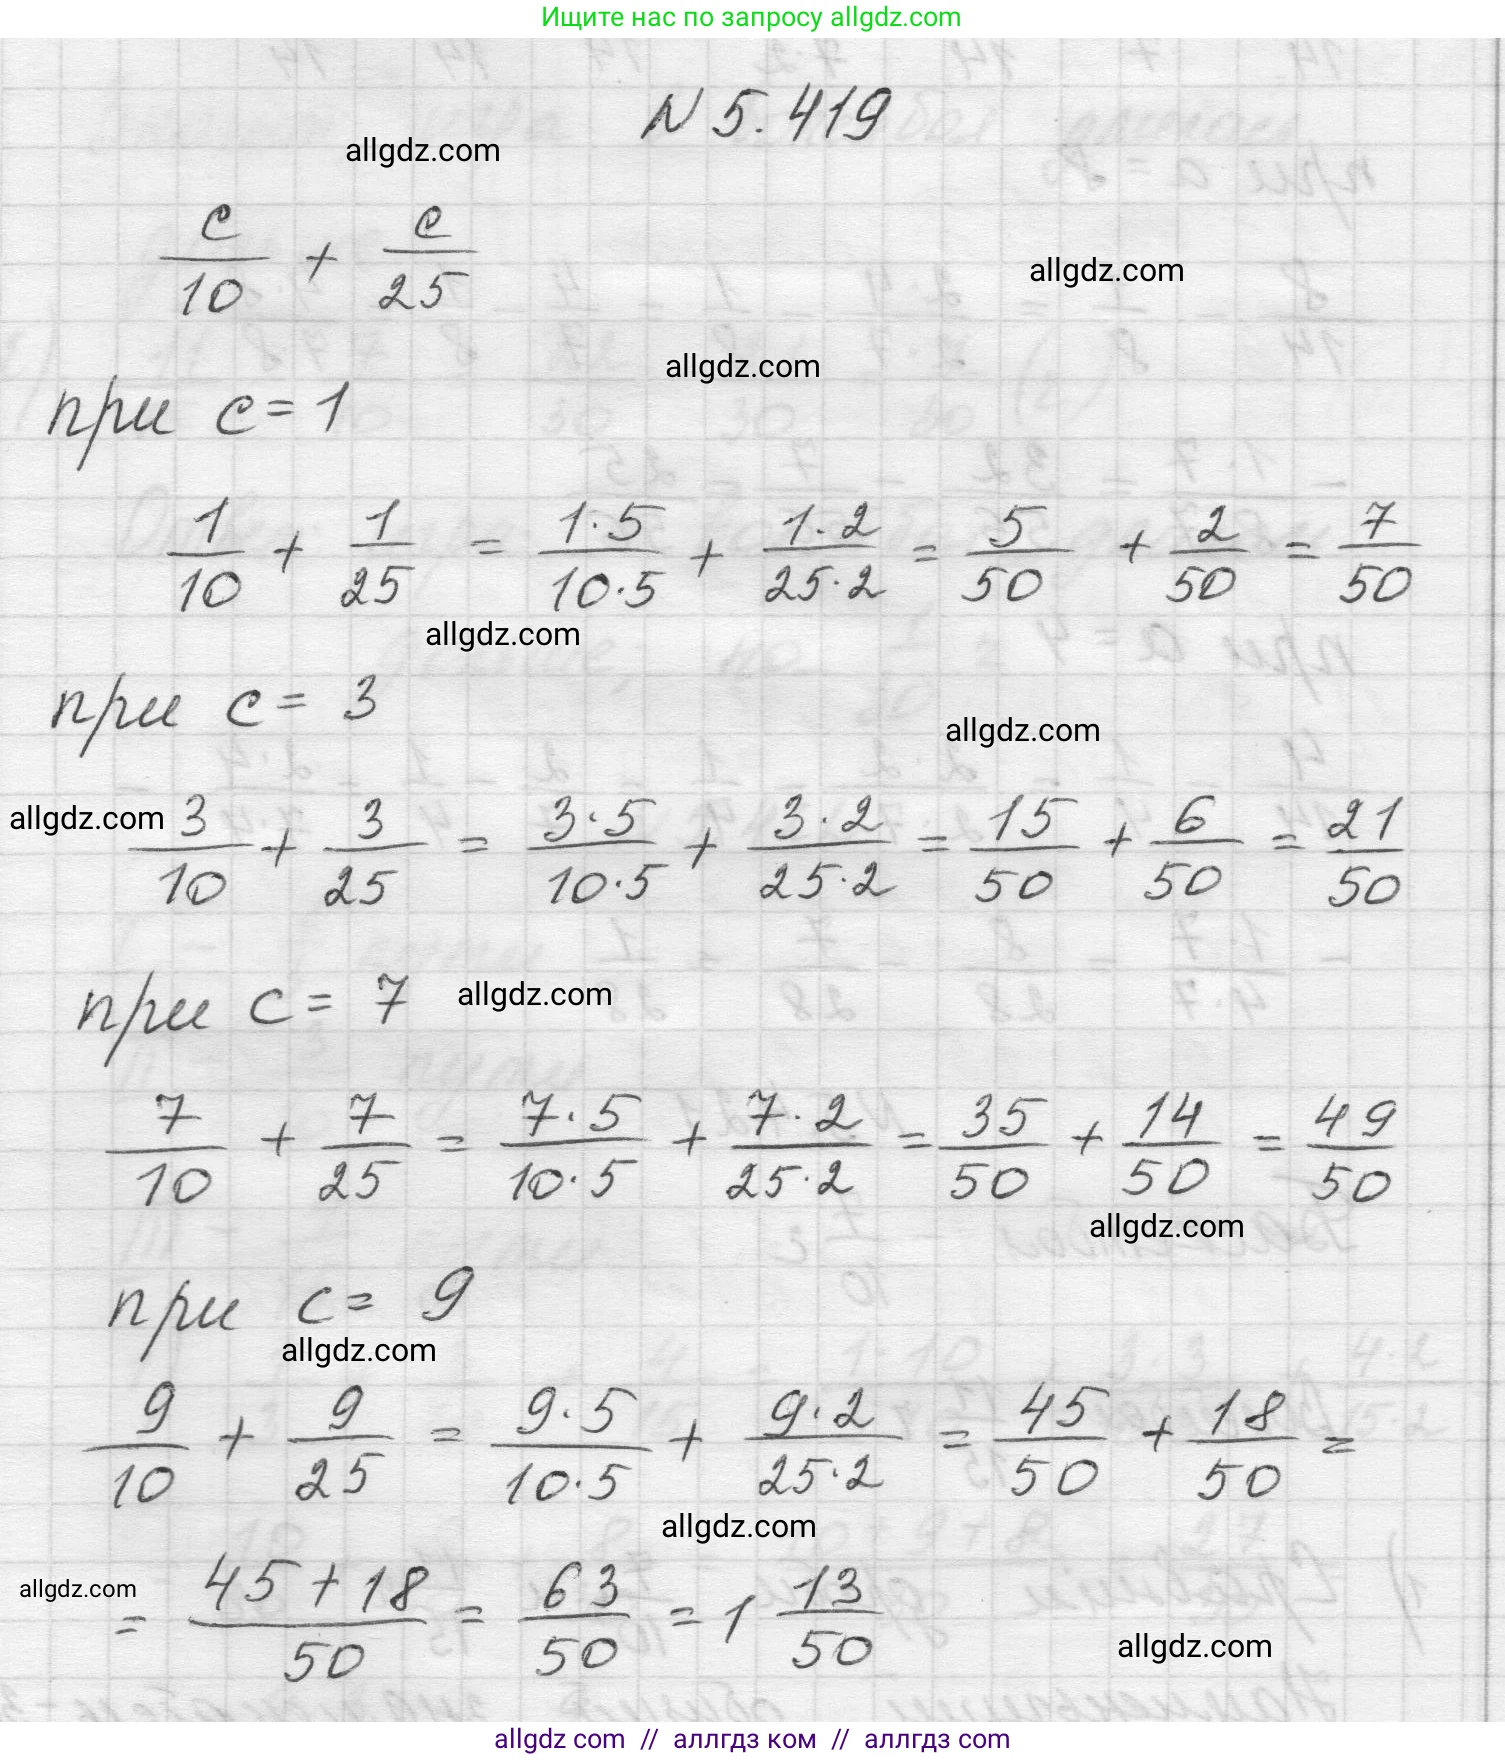 Ищите нас по запросу allgdz.com
N 5.419
allgdz.com
c/10 + c/25
allgdz.com
allgdz.com
при c=1
1/10 + 1/25 = 1·5/10·5 + 1·2/25·2 = 5/50 + 2/50 = 7/50
allgdz.com
при c= 3
allgdz.com
allgdz.com
3/10 + 3/25 = 3·5/10·5 + 3·2/25·2 = 15/50 + 6/50 = 21/50
при c= 7
allgdz.com
7/10 + 7/25 = 7·5/10·5 + 7·2/25·2 = 35/50 + 14/50 = 49/50
allgdz.com
при c= 9
allgdz.com
9/10 + 9/25 = 9·5/10·5 + 9·2/25·2 = 45/50 + 18/50 =
allgdz.com
allgdz.com
= 45+18/50 = 63/50 = 1 13/50
allgdz.com
allgdz com // аллгдз ком // аллгдз com